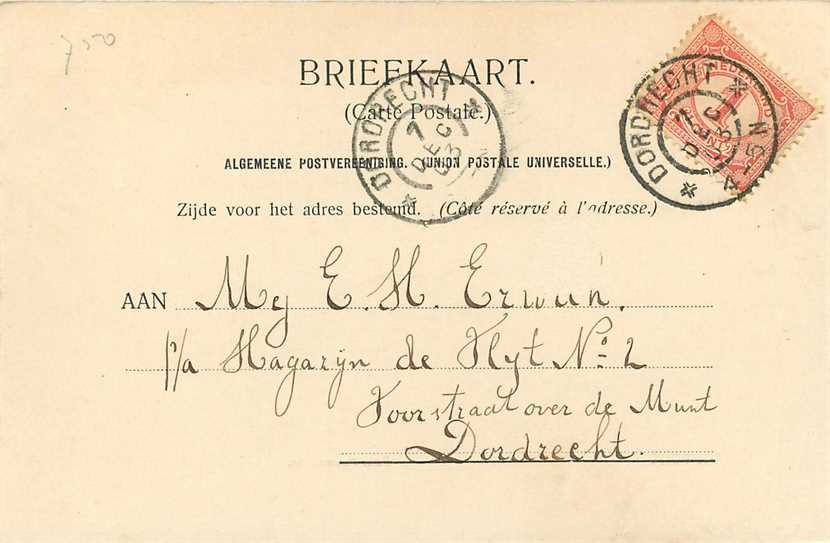 750
BRIEFKAART.
(Carte Postale.)
ALGEMEENE POSTVEREENIGING. (UNION POSTALE UNIVERSELLE.)
Zijde voor het adres bestemd. (Côté réservé à l'adresse.)
AAN Mej E. H. Erwin.
p/a Magazijn de Vlyt No 2
Voorstraat over de Munt
Dordrecht.
DORDRECHT
7
DEC
03
DORDRECHT
7
DEC
03
4-5N
NEDERLAND
1
CENT